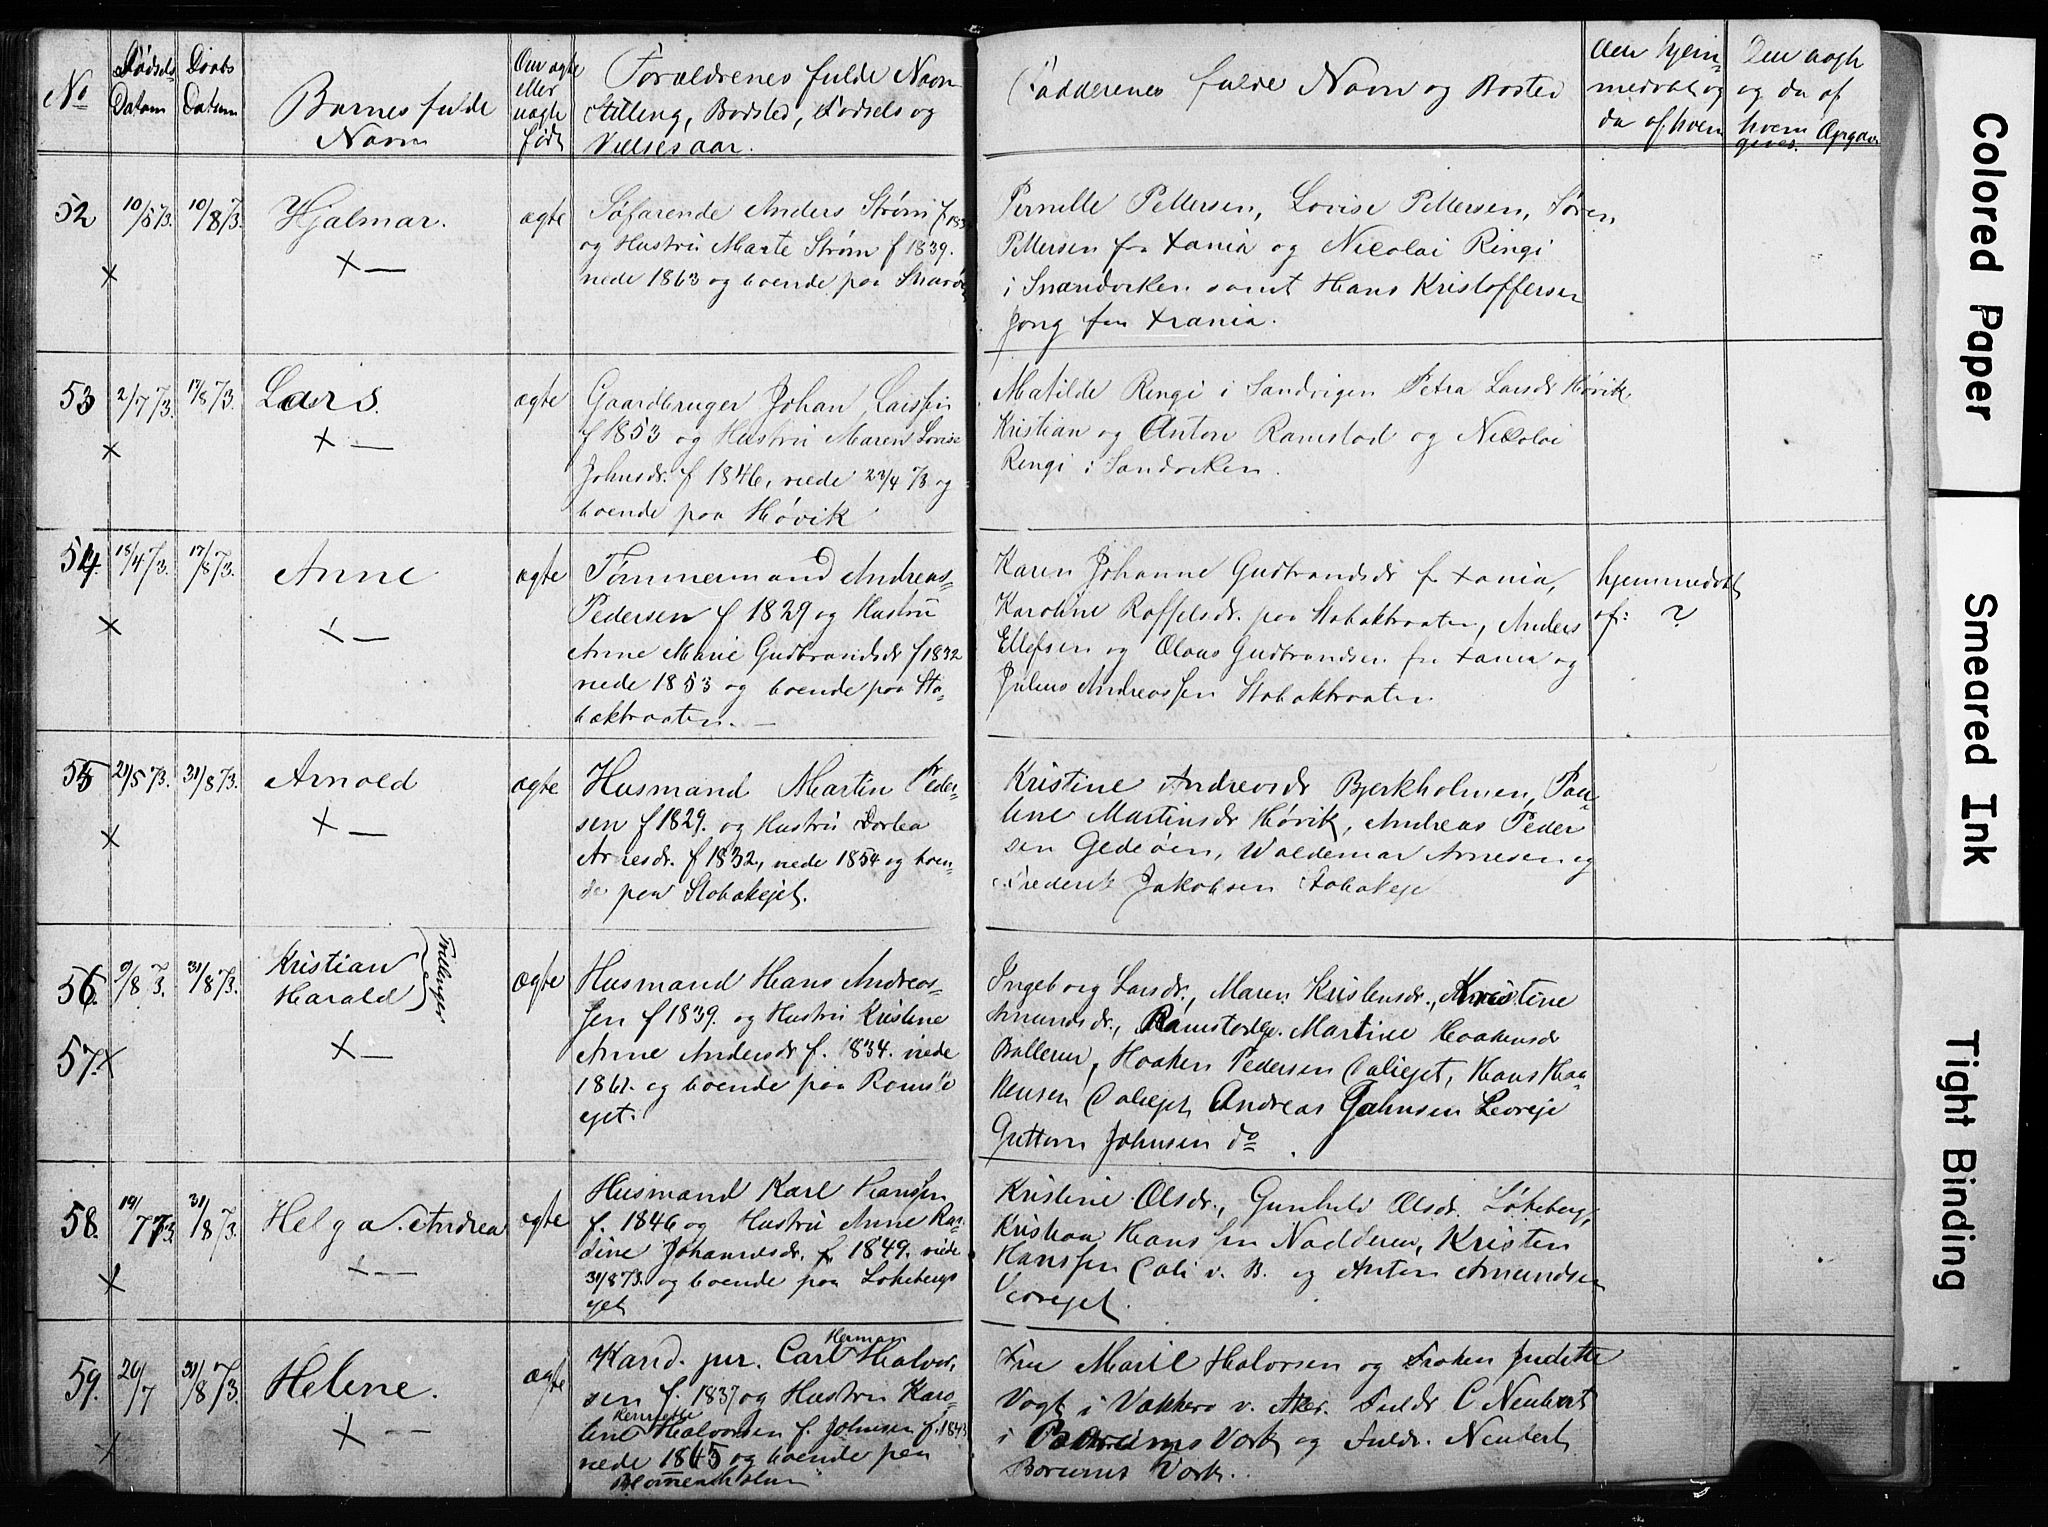 No
Fødsels
Datum
Daabs
Datum
Barnes fulde
Navn
Om ægte
eller
uægte
født
Forældrenes fulde Navn
Stilling, Bosted, Fødsels og
Vielsesaar.
Faddernes fulde Navn og Bosted
Om hjem-
medøbt og
da af hvem
Om uægte
og da af
hvem Opgav
gives.
52
10/5 73.
10/8 73.
Hjalmar.
ægte
Søfarende Anders Strøm f
og Hustru Marte Strøm f 1839.
viede 1863 og boende paa
Pernille Pettersen, Lovise Pettersen, Søren
Pettersen fra Xania og Nicolai Ringi
i Sandviken samt Hans Kristoffersen
fra Xrania.
53
2/7 73.
17/8 73.
Lars.
ægte
Gaardbruger Johan Larssen
f 1853 og Hustru Maren Lovise
Johnsdr. f 1846, viede 23/4 73 og
boende paa Høvik
Matilde Ringi i Sandvigen Petra Larsdr Høvik
Kristian og Anton Ramstad og Nikolai
Ringi i Sandviken.
54.
18/4 73.
17/8 73.
Anne
ægte
Tømmermand Andreas
Pedersen f 1829 og Hustru
Anne Marie Gudbrandsdr f 1832
viede 1853 og boende paa Sta-
bæktraaten.
Karen Johanne Gudbrandsdr f Xania,
Karoline Roffelsdr. paa Stabæktraaten, Anders
Ellefsen og Olaus Gudbrandsen fra Xania og
Julius Andreassen Stabæktraaten
hjemmedøbt
af: ?
55
21/5 73.
31/8 73.
Arnold
ægte
Husmand Martin Peder-
sen f 1829. og Hustru Dortea
Arnesdr. f 1832, viede 1854 og boen-
de paa Stabækejet.
Kristine Andreasdr Bjerkholmen, Pau-
line Martinsdr Høvik, Andreas Peder
sen Gedeøen, Waldemar Arnesen og
Frederik Jakobsen Stabækeje
56.
9/8 73.
31/8 73.
Kristian
Harald
Tvillinger
ægte
Husmand Hans Andreas-
sen f 1839. og Hustru Kristine
Anne Andersdr f. 1834. viede
1861. og boende paa Ramstd
ejet.
57.
Ingeborg Larsdr., Maren Kristensdr., Kristine
Amundsdr., Ramstadeje. Martine Haakensdr
Ballerud, Haaken Pedersen Oaliejet, Hans Haa-
kensen Oaliejet Andreas Johnsen Levreje
Guttorm Johnsen do
58.
19/7 73
31/8 73.
Helga Andrea
ægte
Husmand Karl Hanssen
f. 1846 og Hustru Anne Ran-
dine Johannesdr. f 1849. viede
31/8 73. og boende paa Løkebergs
ejet
Kristine Olsdr., Gunhild Olsdr. Løkeberg,
Kristian Hanssen Nadderud, Kristen
Hanssen Oali v. B. og Anton Amundsen
Levrejet.
59.
20/7
31/8 73
Helene.
ægte
Kand. jur. Carl Herman Halvor-
sen f. 1837 og Hustru Karo-
line Henriette Halvorsen f. Johnsen f. 1843
viede 1865 og boende paa
Blommenholm
Fru Marie Halvorsen og Frøken Judithe
Vogt i Vækkerø v. Aker. Fuldm. C Neubert
i Bærums Værk og Fuldm. Neubert
Bærums Værk.
Colored Paper
Smeared Ink
Tight Binding